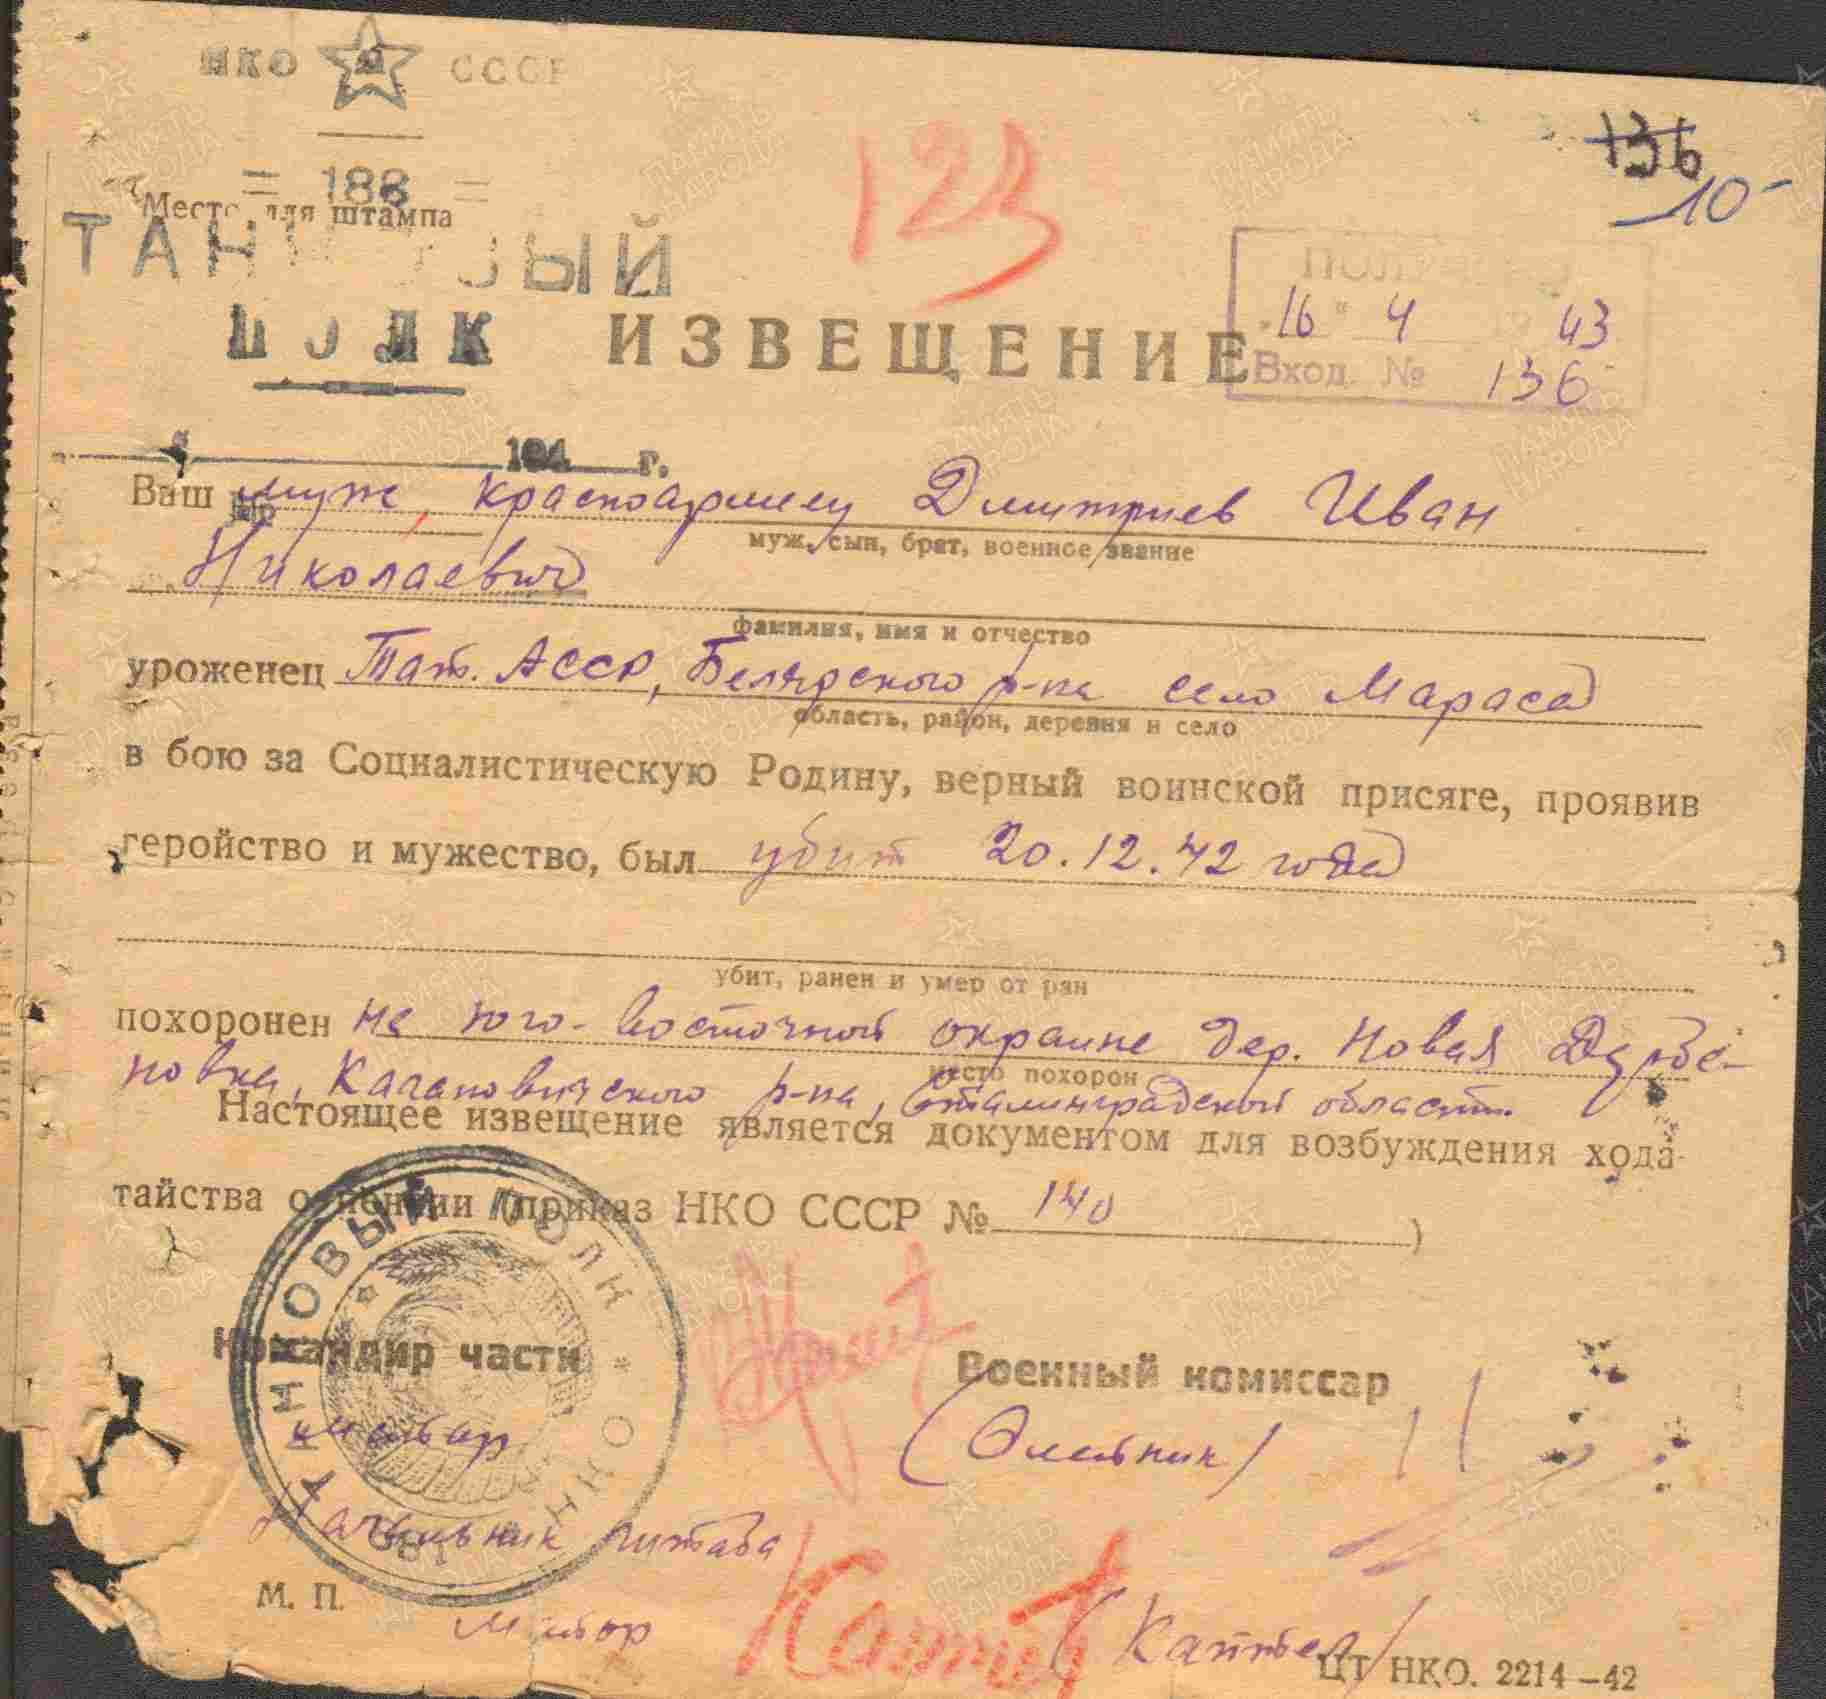 НКО СССР
136
= 188 =
123
10
Место для штампа
ТАНКОВЫЙ
ПОЛК
ИЗВЕЩЕНИЕ
"16" 4 1943
Вход. № 136
194 г.
№
Ваш муж, красноармеец Дмитриев Иван
муж, сын, брат, военное звание
Николаевич
фамилия, имя и отчество
уроженец Тат. АССР, Белярского р-на село Мараса
область, район, деревня и село
в бою за Социалистическую Родину, верный воинской присяге, проявив
геройство и мужество, был убит 20.12.42 года
убит, ранен и умер от ран
похоронен на юго-восточной окраине дер. Новая Дербе-
место похорон
новка, Кагановичского р-на, Сталинградской области.
Настоящее извещение является документом для возбуждения хода-
тайства о пенсии (приказ НКО СССР № 140 )
ТАНКОВЫЙ ПОЛК * НКО * 188
Командир части
Военный комиссар
майор
(Олейник)
Начальник штаба
М. П.
майор
ЦТ НКО. 2214—42
ПАМЯТЬ НАРОДА